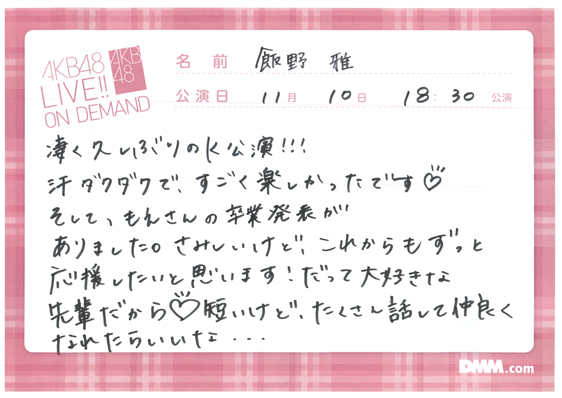 AKB48
LIVE!!
ON DEMAND
AKB
48
名前 飯野 雅
公演日 11月 10日 18:30 公演
凄く久しぶりのK公演!!!
汗ダクダクで、すごく楽しかったです♡
そして、もえさんの卒業発表が
ありました。さみしいけど、これからもずっと
応援したいと思います!だって大好きな
先輩だから♡短いけど、たくさん話して仲良く
なれたらいいな...
DMM.com